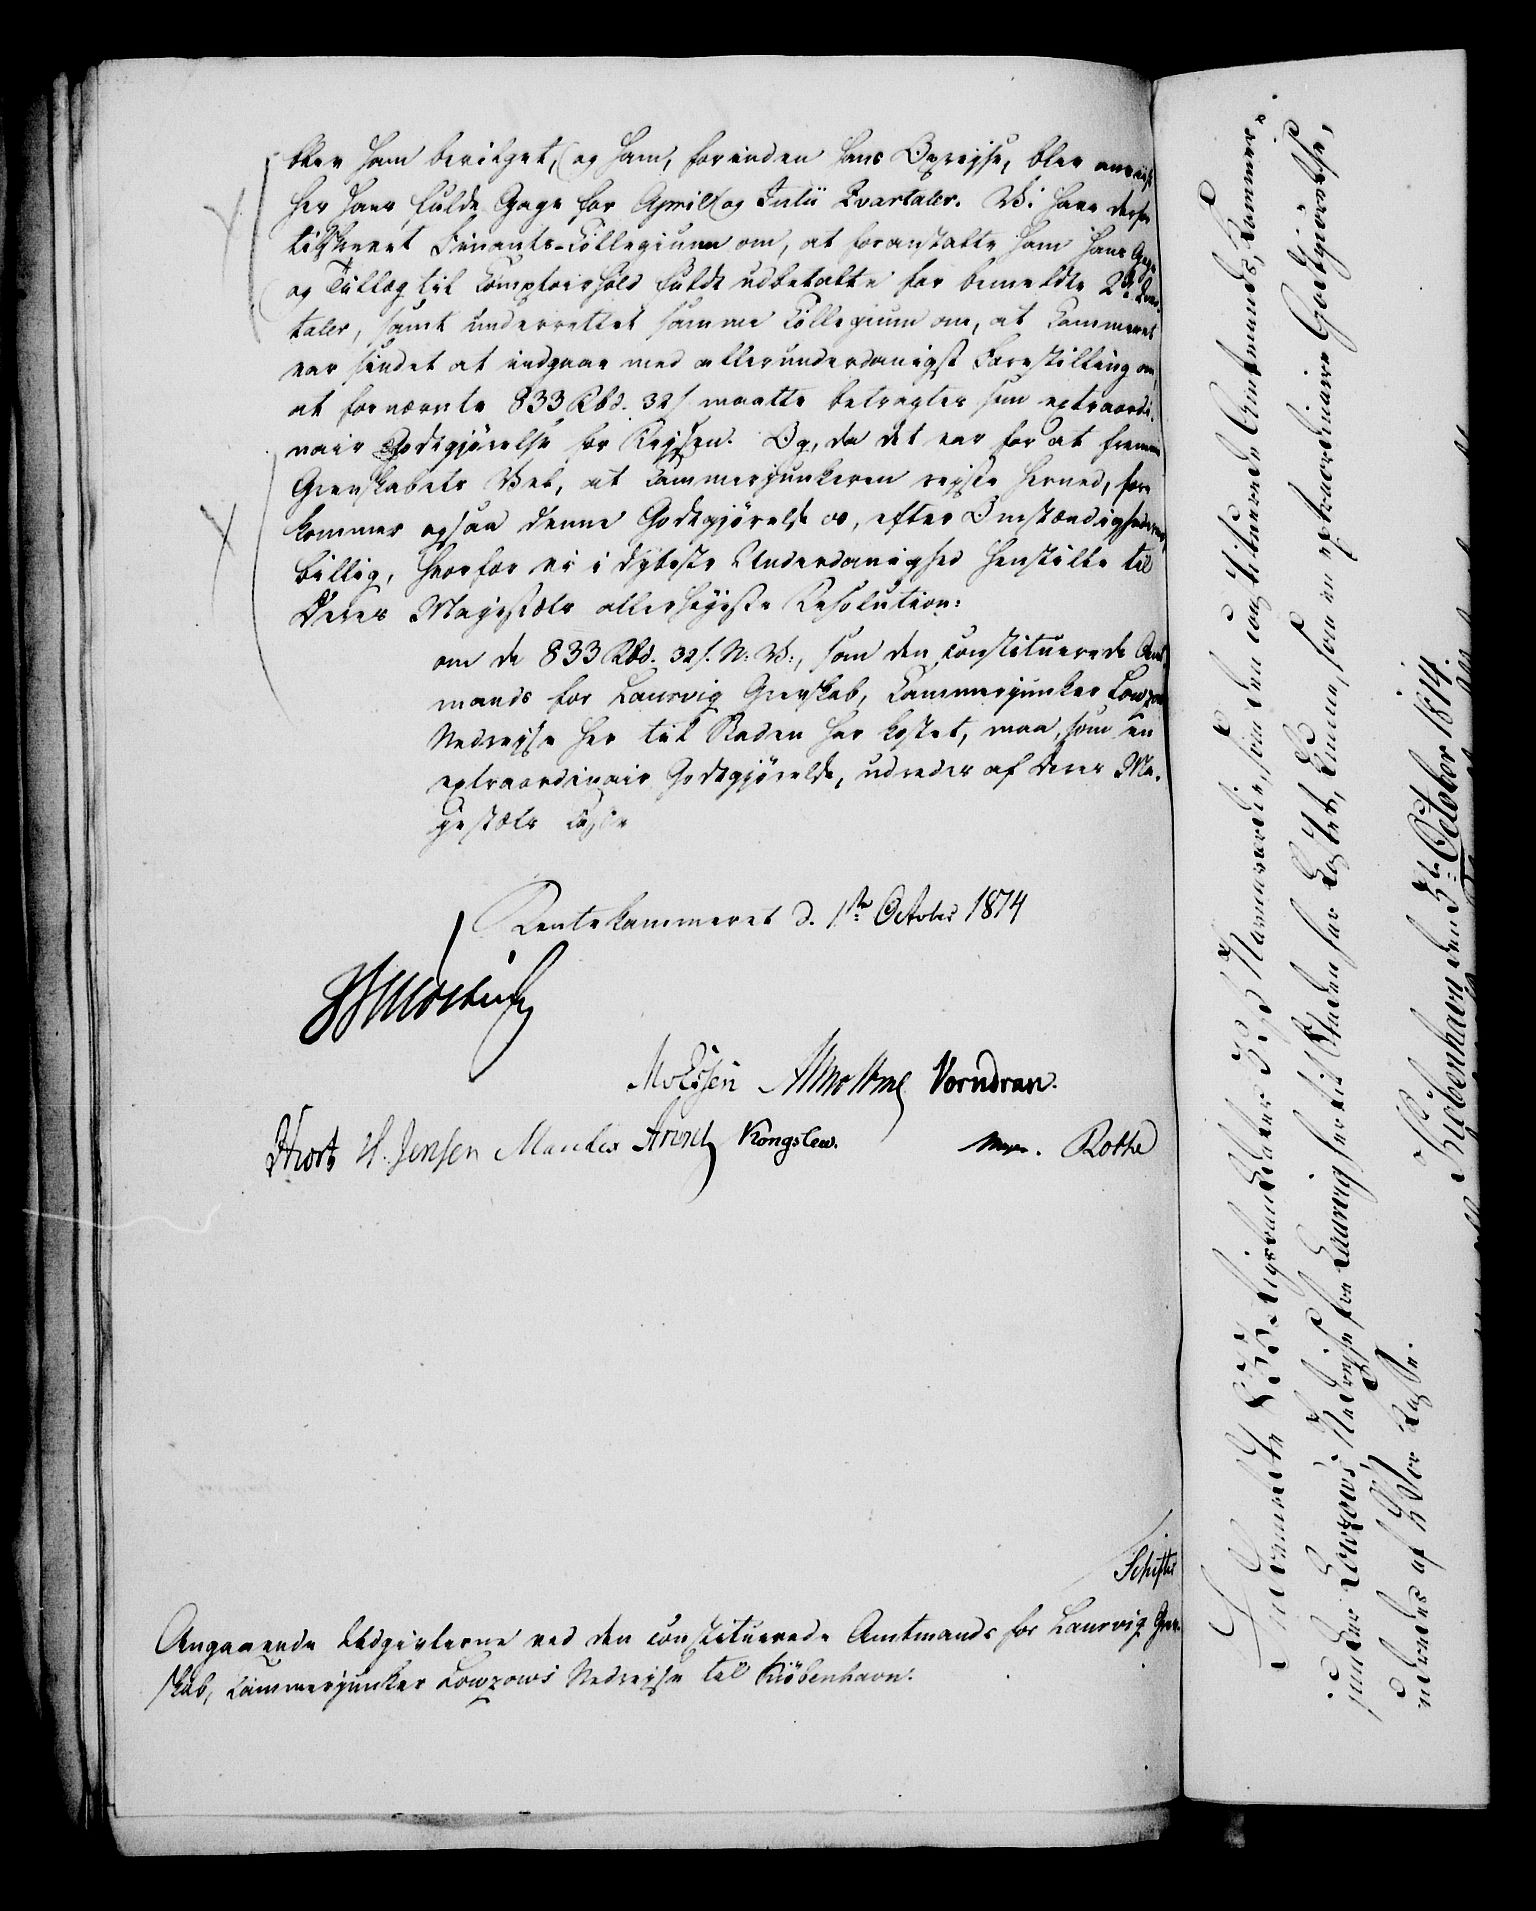 blev ham bevilget, og ham, forinden hans Opreyse, blev anviist
her hans fulde Gage for April og Julii Qvartaler. Vi have derfor
tilskrevet Finants-Collegium om, at foranstalte ham hans Gage
og Tillæg til Comptoirhold fuldt udbetalte for bemeldte 2de Qvar-
taler, samt underrettet samme Collegium om, at Kammeret
var sindet at indgaae med allerunderdanigst Forestilling om,
at fornævnte 833 Rbd. 32 s maatte betragtes som extraordi-
nair Godtgjørelse for Reysen. Og, da det var for at fremme
Grevskabets Vel, at Kammerjunkeren reyste herned, fore-
kommer ogsaa denne Godtgjørelse os, efter Omstændighederne,
billig, hvorfor vi i dybeste Underdanighed henstille til
Deres Majestæts allerhøjeste Resolution:
om de 833 Rbd. 32 s. N: V:, som den constituerede Amt-
mands for Laurvig Grevskab, Kammerjunker Lowzows
Nedreyse her til Staden har kostet, maa, som en
extraordinair Godtgjørelse, udredes af Deres Ma-
jestæts Casse
Rentekammeret d. 1ste October 1814
JSMösting
Molssen AMoltke Vorndran.
Hiort H. Jensen Manthes Arnsd Kongslew. Rothe
Schifter
Angaaende Udgivterne ved den constituerede Amtmands for Laurvig Grev-
skab, Kammerjunker Lowzows Nedreyse til Kiøbenhavn.
Indbemeldte 833 Rigsbankdaler 32 s Navneværdie, som den constituerede Amtmands, Kammer-
junker Lowzows Nedreyse fra Laurvig her til Staden har kostet, kunne, som en extraordinaire Godtgiørelse,
udredes af Vor Kasse.
Kiøbenhavn den 3die October 1814.